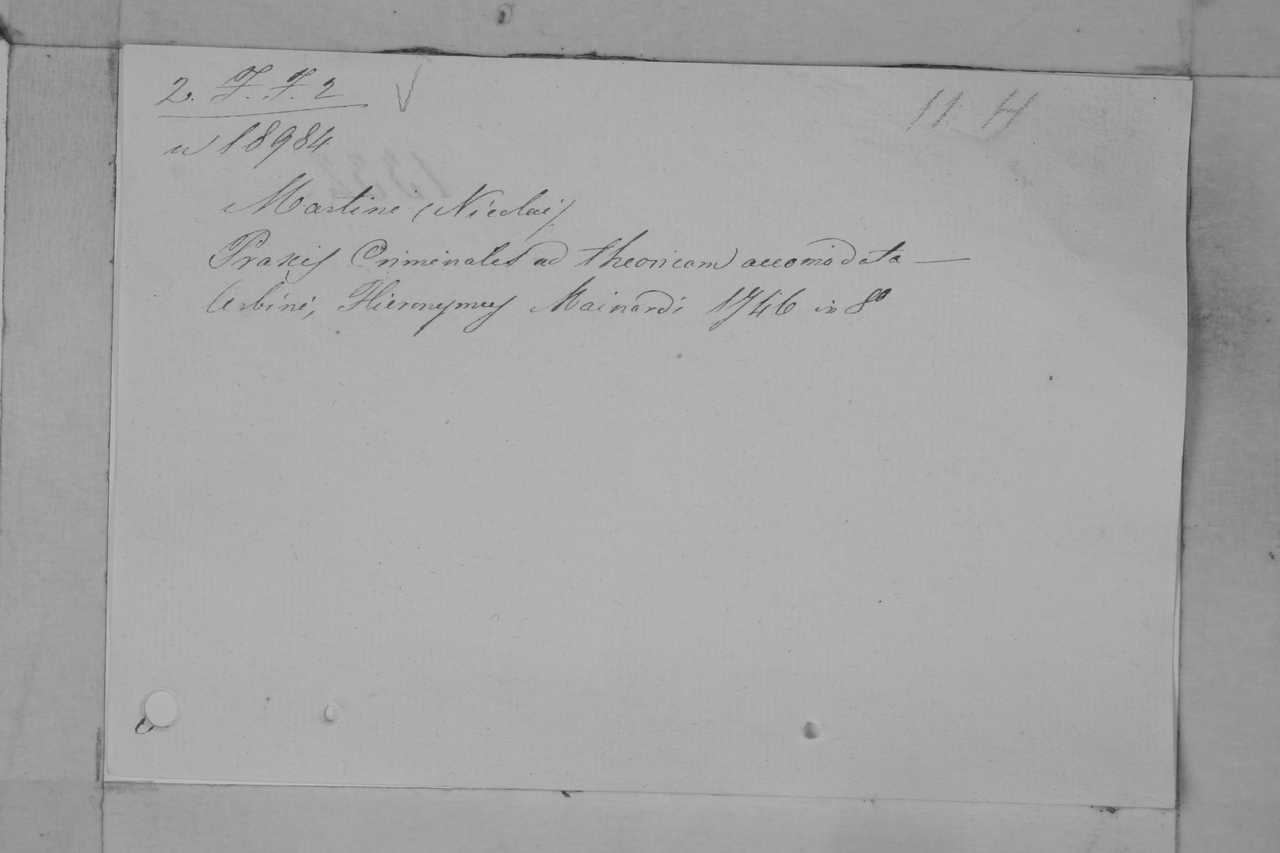 2. F. F. 2 V
11 H
n 18984
Martini (Nicolai)
Praxis Criminales ad theoricam accomodata —
Urbini, Hieronymus Mainardi 1746 in 8º